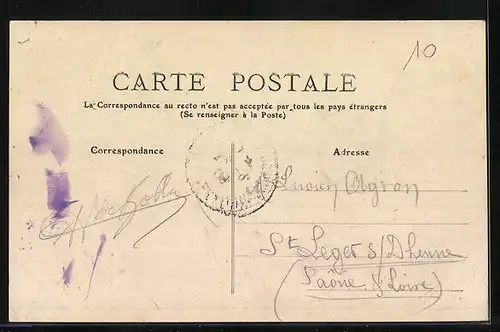 10
CARTE POSTALE
La Correspondance au recto n'est pas acceptée par tous les pays étrangers
(Se renseigner à la Poste)
Correspondance
Adresse
Lucien
St Leger s/ Dheune
(Saône & Loire)